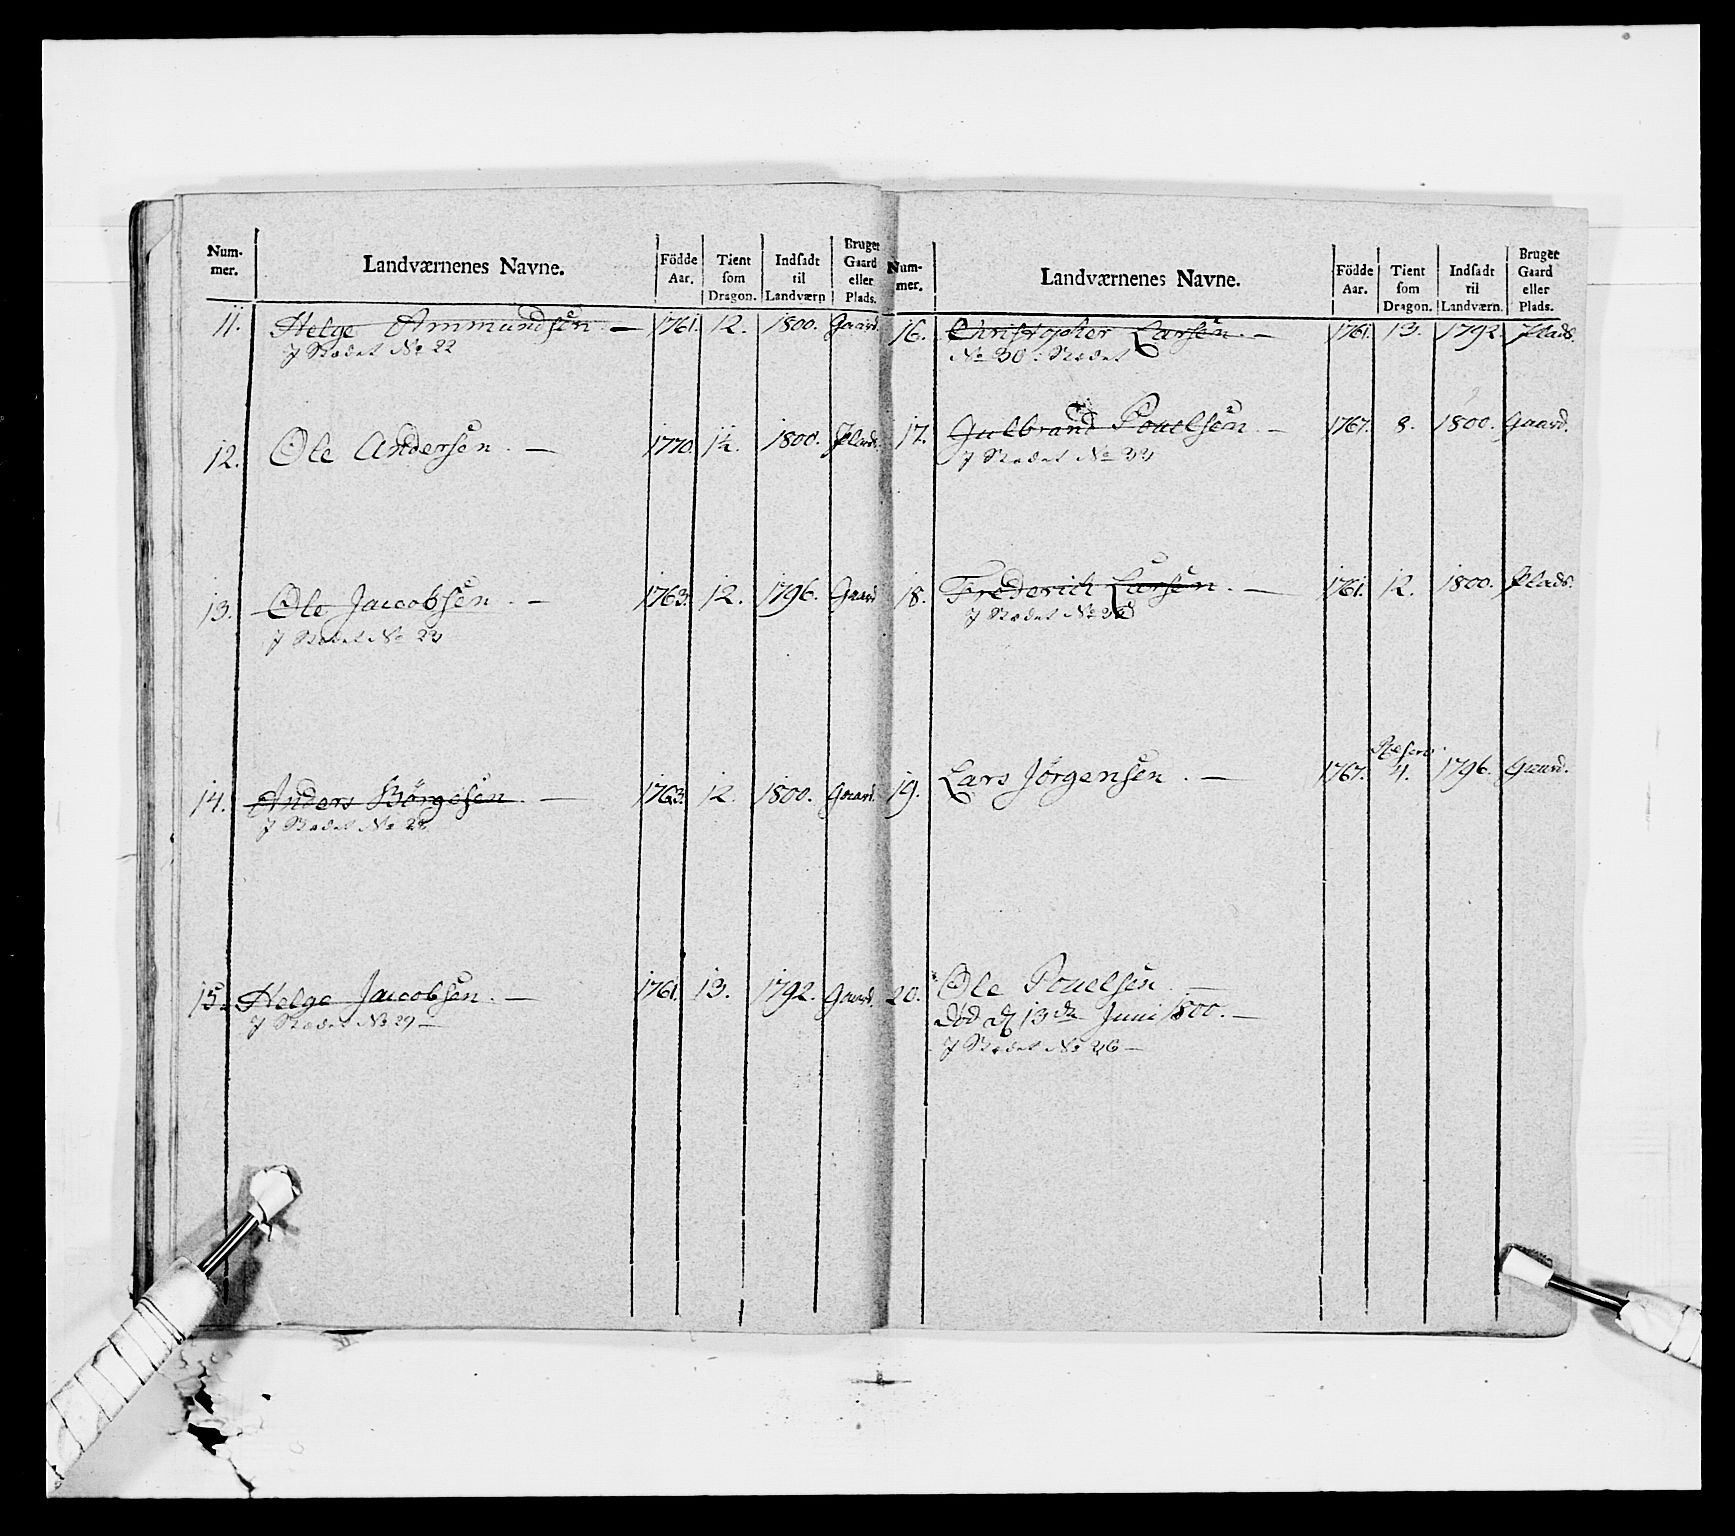 Num-mer. Landværnenes Navne. Födde Aar. Tient som Dragon. Indsadt til Landværn Bruget Gaard eller Plads.
11. Helge Ammundsen — 1761. 12. 1800. Gaard.
J Stædet No 22
12. Ole Andersen. — 1770. 1800. Plads.
13. Ole Jacobsen. — 1763. 12. 1796. Gaard
J Stædet No
14. Anders Börgesen. — 1763. 12. 1800. Gaard.
J Stædet No
15. Helge Jacobsen. — 1761. 13. 1792. Gaard.
J Stædet No 29 —
Num-mer. Landværnenes Navne. Födde Aar. Tient som Dragon. Indsadt til Landværn. Bruget Gaard eller Plads.
16. Christopher Larsen. — 1761. 13. 1792. Plads.
No 30. Stædet
17. Gulbrand Pouelsen. — 1767. 8. 1800. Gaard.
J Stædet No
18. Frederich Larsen. — 1761. 12. 1800. Plads.
J Stædet No
Reserv.
19. Lars Jörgensen. — 1767. 4. 1796. Gaard.
20. Ole Pouelsen. —
död d 13de Juni 1800. —
J Stædet No 26 —